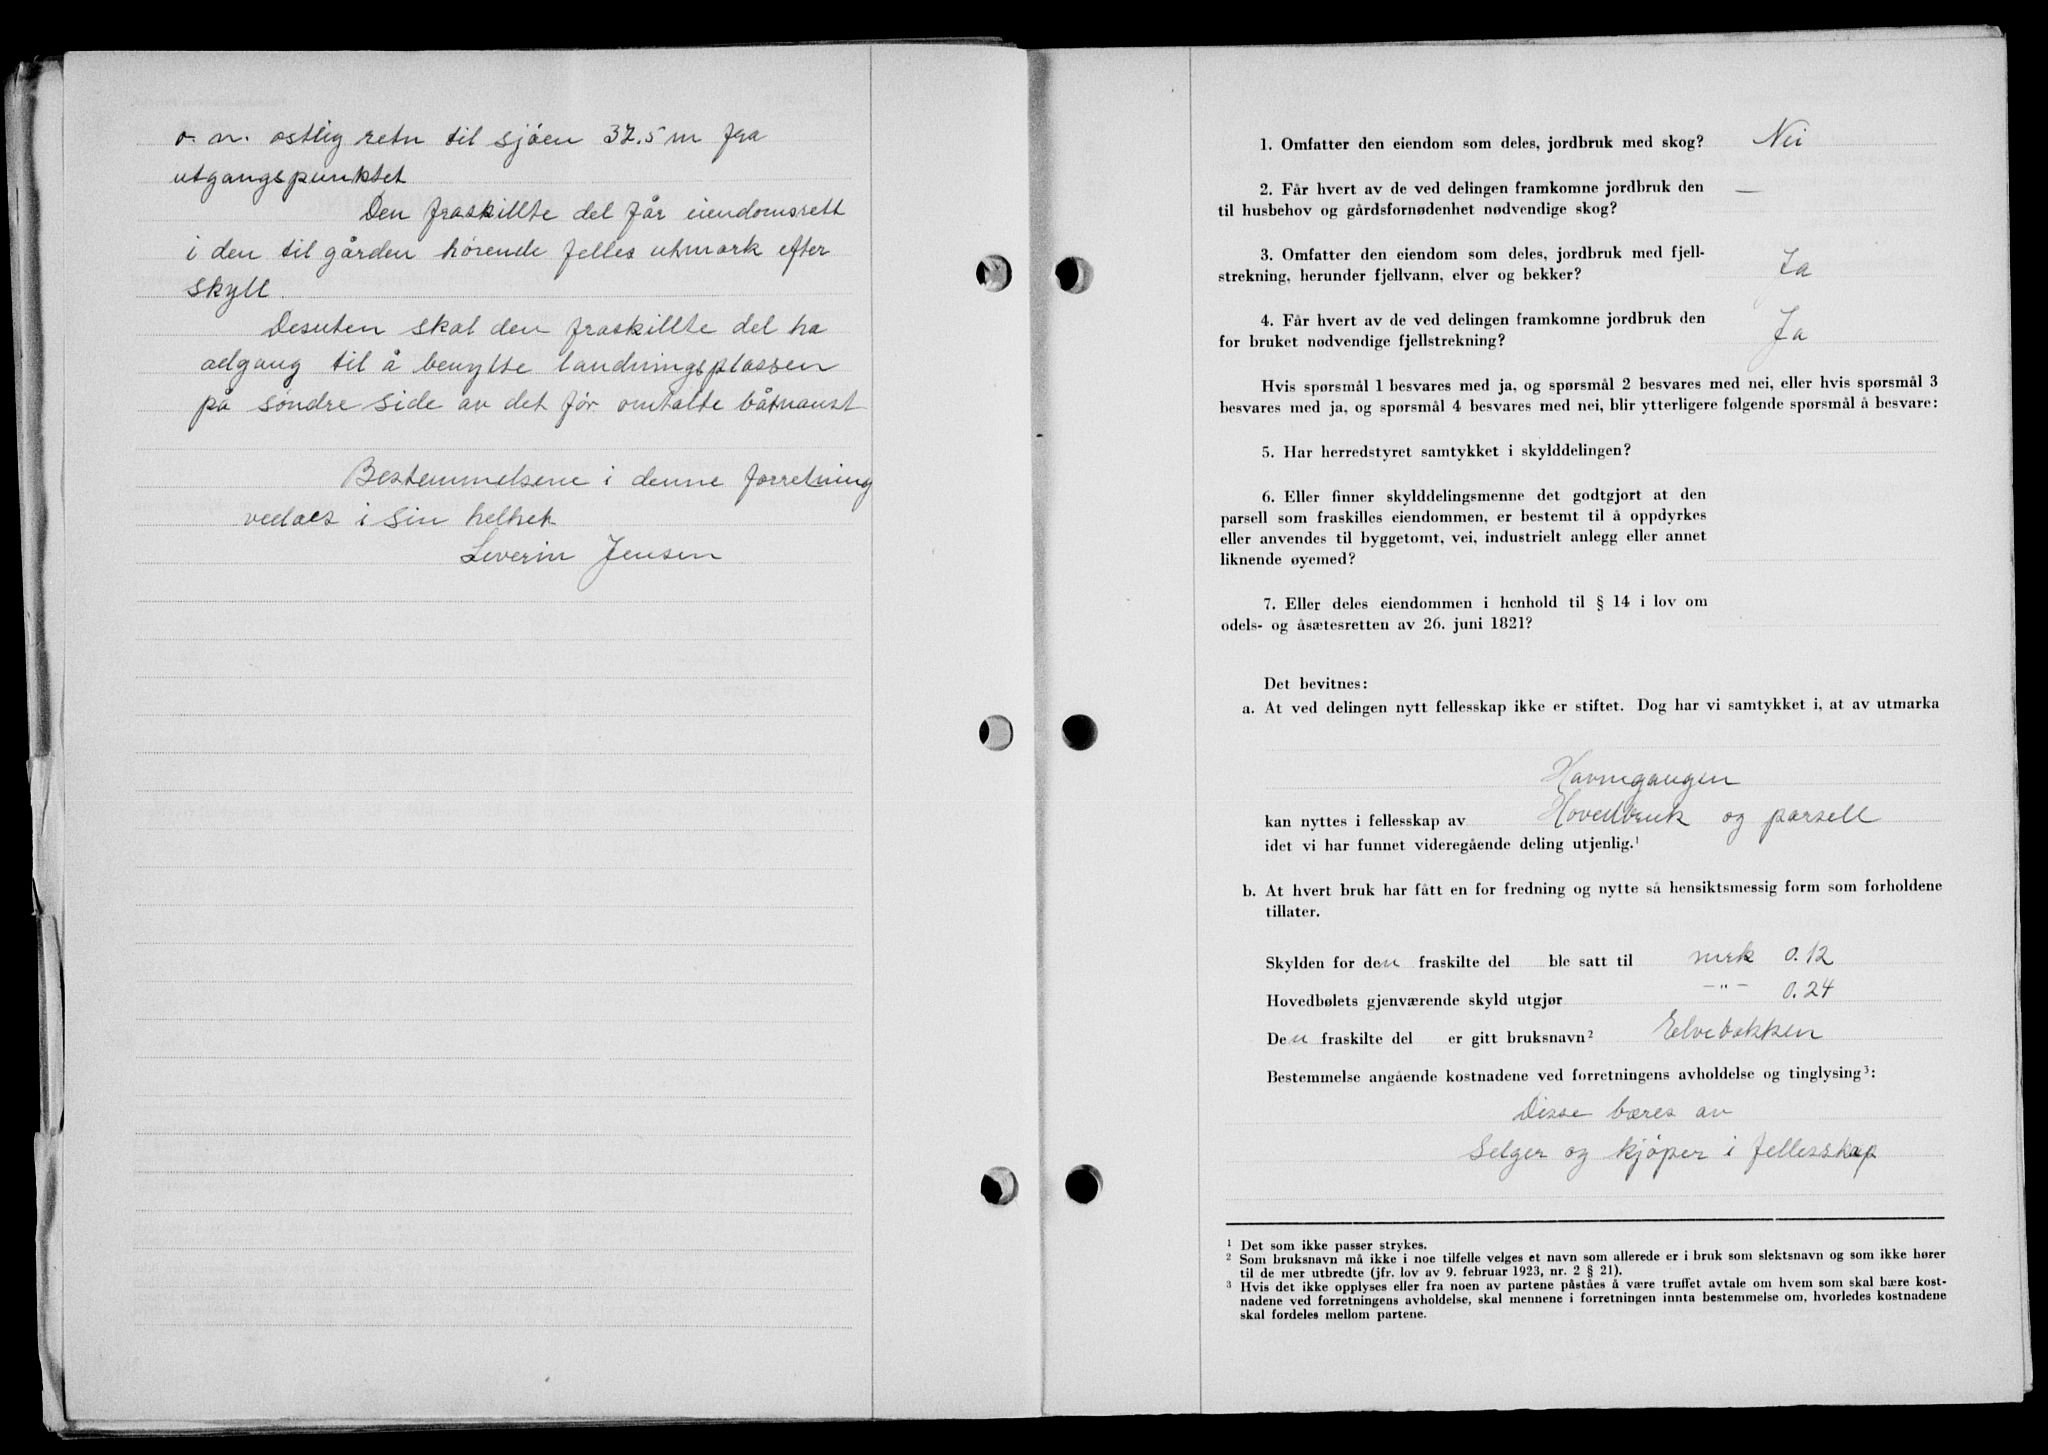 o. n. østlig retn til sjøen 37.5 m fra
utgangspunktet
Den fraskillte del får eiendomsrett
i den til gården hørende felles utmark efter
skyll.
Desuten skal den fraskillte del ha
adgang til å benytte landningsplassen
på søndre side av det før omtalte båtnaust
Bestemmelsene i denne forretning
vedtaes i sin helhet
Severin Jensen
1. Omfatter den eiendom som deles, jordbruk med skog? Nei
2. Får hvert av de ved delingen framkomne jordbruk den —
til husbehov og gårdsfornødenhet nødvendige skog?
3. Omfatter den eiendom som deles, jordbruk med fjell-
strekning, herunder fjellvann, elver og bekker? Ja
4. Får hvert av de ved delingen framkomne jordbruk den
for bruket nødvendige fjellstrekning? Ja
Hvis spørsmål 1 besvares med ja, og spørsmål 2 besvares med nei, eller hvis spørsmål 3
besvares med ja, og spørsmål 4 besvares med nei, blir ytterligere følgende spørsmål å besvare:
5. Har herredstyret samtykket i skylddelingen?
6. Eller finner skylddelingsmennene det godtgjort at den
parsell som fraskilles eiendommen, er bestemt til å oppdyrkes
eller anvendes til byggetomt, vei, industrielt anlegg eller annet
liknende øyemed?
7. Eller deles eiendommen i henhold til § 14 i lov om
odels- og åsætesretten av 26. juni 1821?
Det bevitnes:
a. At ved delingen nytt fellesskap ikke er stiftet. Dog har vi samtykket i, at av utmarka
Havnegangen
kan nyttes i fellesskap av Hovedbruk og parsell
idet vi har funnet videregående deling utjenlig.¹
b. At hvert bruk har fått en for fredning og nytte så hensiktsmessig form som forholdene
tillater.
Skylden for den fraskilte del ble satt til mrk 0.12
Hovedbølets gjenværende skyld utgjør -"- 0.24
Den fraskilte del er gitt bruksnavn² Elvebakken
Bestemmelse angående kostnadene ved forretningens avholdelse og tinglysing³:
Disse bæres av
Selger og kjøper i fellesskap
¹ Det som ikke passer strykes.
² Som bruksnavn må ikke i noe tilfelle velges et navn som allerede er i bruk som slektsnavn og som ikke hører
til de mer utbredte (jfr. lov av 9. februar 1923, nr. 2 § 21).
³ Hvis det ikke opplyses eller fra noen av partene påståes å være truffet avtale om hvem som skal bære kost-
nadene ved forretningens avholdelse, skal mennene i forretningen innta bestemmelse om, hvorledes kostnadene
skal fordeles mellom partene.